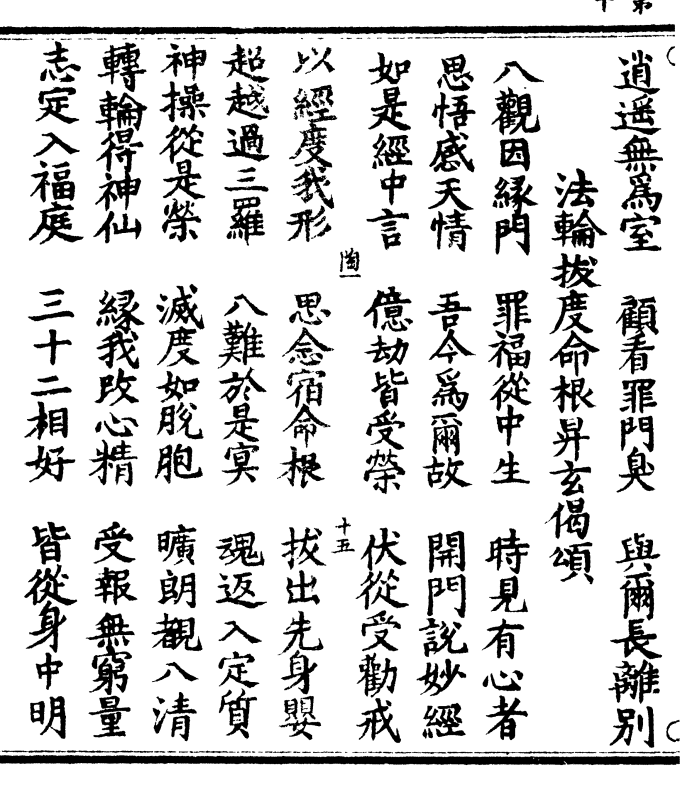 逍遥無爲室　顧看罪門臭　與爾長離別
法輪拔度命根昇玄偈頌
八觀因緣門　罪福從中生　時見有心者
思悟感天情　吾今爲爾故　開門說妙經
如是經中言　億劫皆受榮　伏從受勸戒
陶一　十五
以經度我形　思念宿命根　拔出先身嬰
超越過三羅　八難於是寞　魂返入定質
神操從是榮　滅度如脫胞　曠朗覩八清
轉輪得神仙　緣我改心精　受報無窮量
志定入福庭　三十二相好　皆從身中明